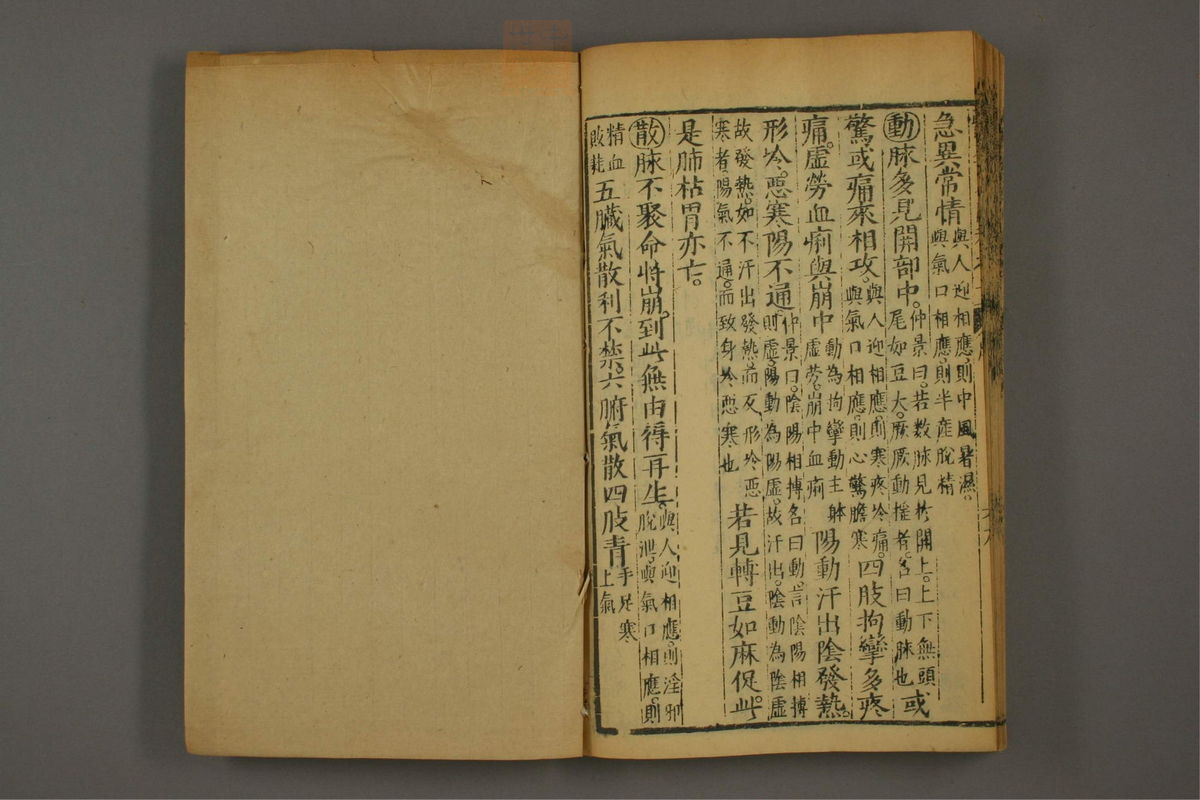 急異常情與人迎相應則中風暑濕。與氣口相應則半產脫精
動脉多見開部中。仲景曰。若數脉見於開上。上下無頭尾如豆大。厥厥動摧者。名曰動脉也或
驚或痛來相攻。與人迎相應。則寒疼冷痛。與氣口相應。則心驚膽寒四肢拘攣多疼
痛。虛勞血痢與崩中動為拘攣動主躰虛勞。崩中血痢陽動汗出陰發熱。
形冷。惡寒陽不通。仲景曰。陰陽相搏名曰動。言陰陽相搏則虛。陽動為陽虛。故汗出。陰動為陰虛
故發熱。如不汗出發熱而反形冷惡寒者。陽氣不通。而致身冷惡寒也若見轉豆如麻促。此
是肺枯胃亦亡。
散脉不聚命將崩。到此無由得再生。與人迎相應。則淫邪脫泄。與氣口相應。則
精血敗耗五臟氣散利不禁。六腑氣散四肢青手足寒上氣